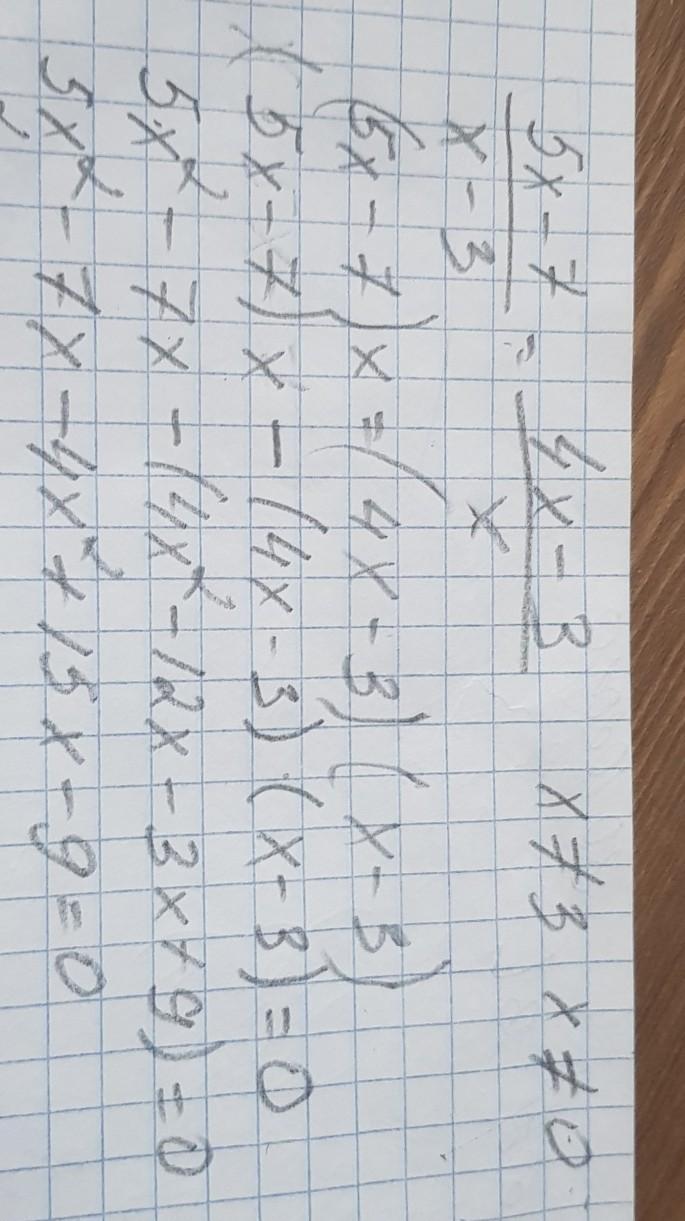 5x-7 / x-3 = 4x-3 / x x≠3 x≠0
(5x-7)x=(4x-3)(x-3)
(5x-7)x-(4x-3)·(x-3)=0
5x²-7x-(4x²-12x-3x+9)=0
5x²-7x-4x²+15x-9=0